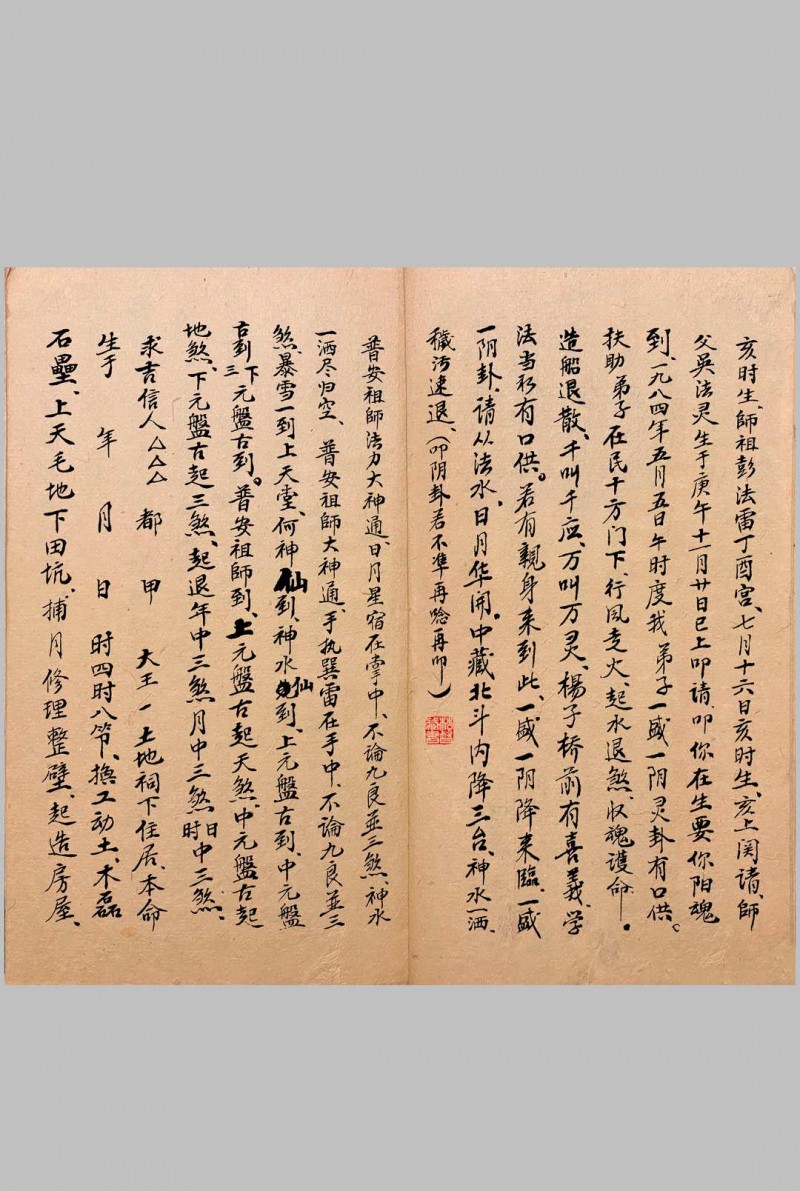 亥时生、師祖彭法雷丁酉宮、七月十六日亥时生、亥上関請、師
父吳法灵生于庚午十一月廿日巳上叩請、叩你在生要你阳魂
到、一九八四年五月五日午时度我弟子一盛一阴灵卦有口供。
扶助弟子在民千方门下、行风走火、起水退煞、収魂護命。
造船退散、千叫千应、万叫万灵、楊子桥前有喜義、学
法当初有口供。若有親身来到此、一盛一阴降来臨、一盛
一阴卦、請从法水、日月华開。中藏北斗内降三台、神水一洒、
穢污速退、(叩阴卦若不準再唸再叩)
普安祖師法力大神通、日月星宿在掌中、不論九良並三煞、神水
一洒尽归空、普安祖師大神通、手执巽雷在手中、不論九良並三
煞、暴雪一到上天堂、何神仙到、神水仙到、上元盤古到、中元盤
古到三下元盤古到。普安祖師到、上元盤古起天煞、中元盤古起
地煞、下元盤古起三煞、起退年中三煞月中三煞日时中三煞、
求吉信人△△△都 甲 大王一土地祠下住居、本命
生于 年 月 日 时四时八节、撫工动土、木磊
石壘、上天毛地下田坑、捕月修理整壁、起造房屋、